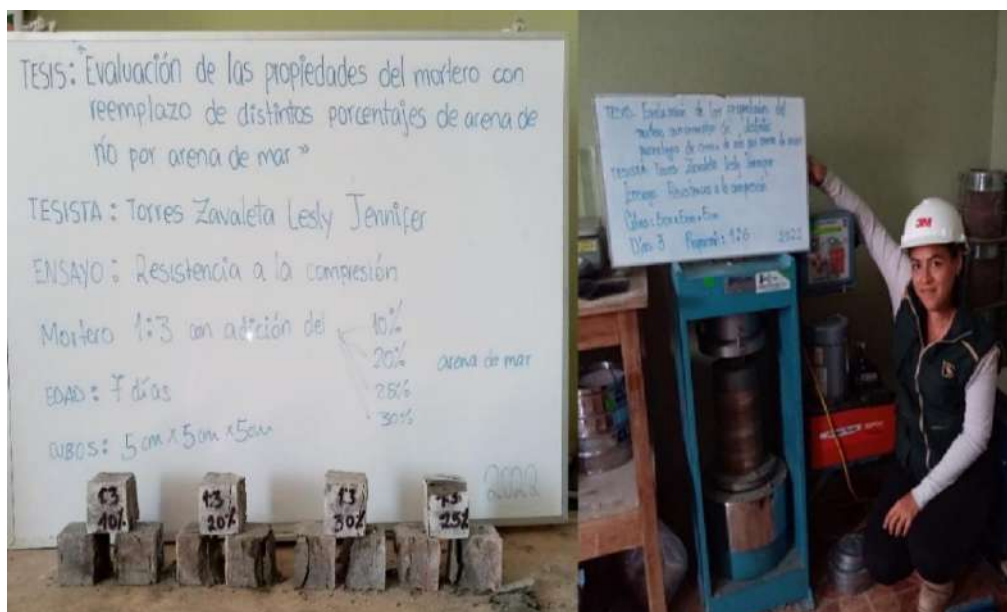 TESIS: "Evaluación de las propiedades del mortero con
reemplazo de distintos porcentajes de arena de
río por arena de mar"
TESISTA: Torres Zavaleta Lesly Jennifer
ENSAYO: Resistencia a la compresión
Mortero 1:3 con adición del 10%
20% arena de mar
25%
30%
EDAD: 7 días
CUBOS: 5cm x 5cm x 5cm
2022
1:3 10%
1:3 20%
1:3 30%
1:3 25%
TESIS: Evaluación de las propiedades del
mortero con reemplazo de distintos
porcentajes de arena de río por arena de mar
TESISTA: Torres Zavaleta Lesly Jennifer
Ensayo: Resistencia a la compresión
Cubos: 5cm x 5cm x 5cm
Días: 3 Proporción: 1:6 2022
3M